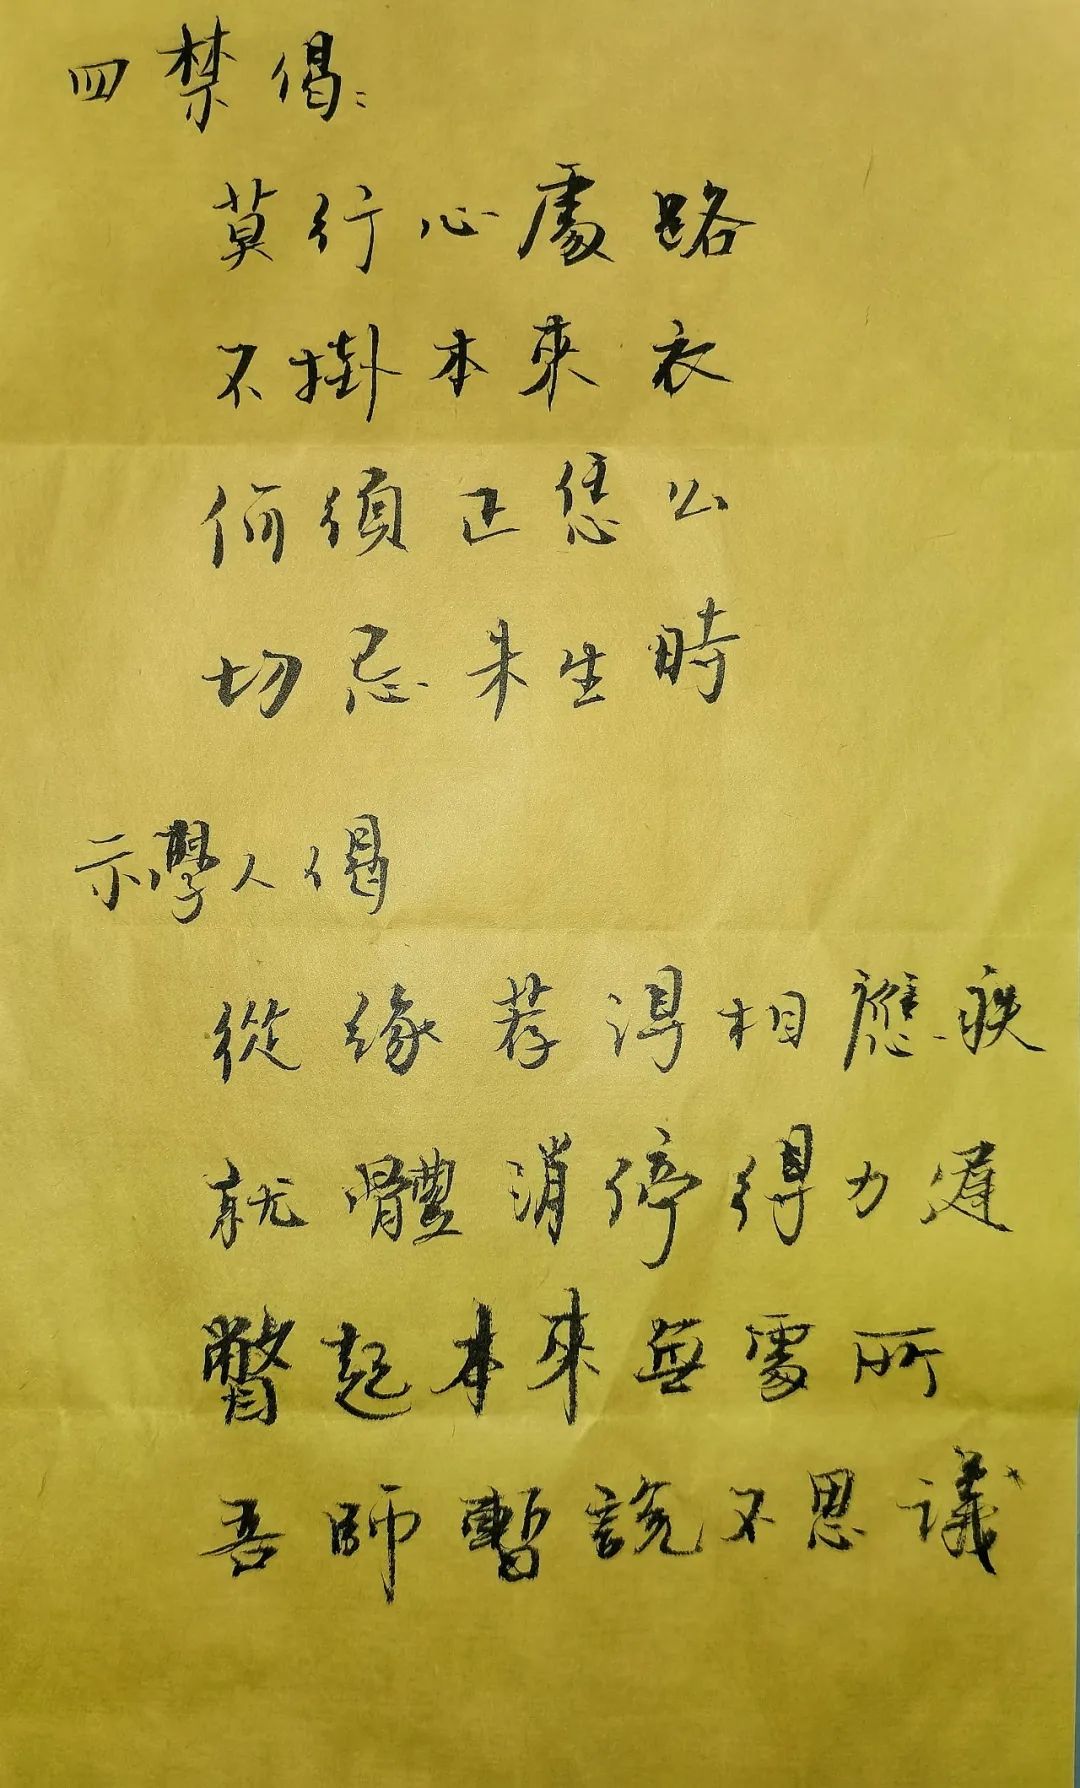 四禁偈：
莫行心處路
不掛本來衣
何須正恁么
切忌未生時
示學人偈
從緣荐得相應疾
就體消停得力遲
瞥起本來無處所
吾師暫說不思議